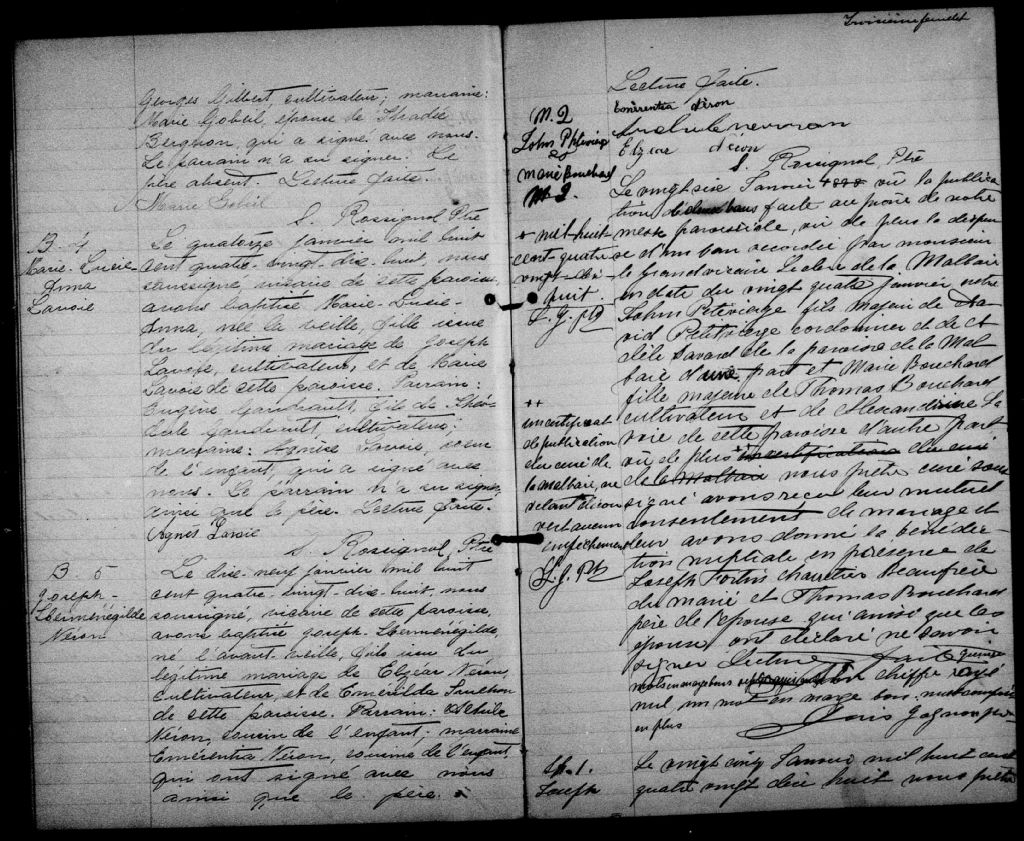 Georges Gilbert, cultivateur; marraine:
Marie Gobeil épouse de Thadée
Bergeron, qui a signé avec nous.
Le parrain n'a su signer. Le
père absent. Lecture faite.
Marie Gobeil
S. Rossignol Ptre
B. 4
Marie-Lucie-
Anna
Lavoie
Le quatorze janvier mil huit
cent quatre-vingt-dix-huit, nous
soussigné, vicaire de cette paroisse,
avons baptisé Marie-Lucie-
Anna, née la veille, fille issue
du légitime mariage de Joseph
Lavoie, cultivateur, et de Marie
Lavoie de cette paroisse. Parrain:
Eugène Gaudreault, fils de
Gaudreault, cultivateur;
marraine: Agnèse Lavoie, soeur
de l'enfant, qui a signé avec
nous. Le parrain n'a su signer,
ainsi que le père. Lecture faite.
Agnès Lavoie
S. Rossignol, Ptre
B. 5
Joseph-
Herménégilde
Néron
Le dix-neuf janvier mil huit
cent quatre-vingt-dix-huit, nous
soussigné, vicaire de cette paroisse,
avons baptisé Joseph-Herménégilde,
né l'avant-veille, fils issu du
légitime mariage de Elzéar Néron,
cultivateur, et de Emérilda Truchon
de cette paroisse. Parrain: Achille
Néron, cousin de l'enfant; marraine
Emérentia Néron, cousine de l'enfant,
qui ont signé avec nous
ainsi que le père.
Troisième feuillet
Lecture faite.
Emérentia Néron
Elzear Néron
S. Rossignol, Ptre
M. 2
Johns Petiviage
&
Marie Bouchard
M. 2.
Le vingt six Janvier 1898 vû la publica
tion de deux bans faite au prône de notre
messe paroissiale, vû de plus la dispen
se d'un ban accordée par monsieur
le Grand vicaire Leclerc de la Malbaie
en date du vingt quatre janvier notre
Johns Petiviage fils majeur de Da
vid Petitviage cordonnier et de
Savard de la paroisse de la Mal
baie d'une part et Marie Bouchard
fille majeure de Thomas Bouchard
cultivateur et de Alexandrine La
voie de cette paroisse d'autre part
vû de plus un certification du curé
de la Malbaie nous prêtre curé sous
signé avons reçu leur mutuel
consentement de mariage et
leur avons donné la bénédic-
tion nuptiale en présence de
Joseph Fortin charretier Beaufrère
du marié et Thomas Bouchard
père de l'épouse qui ainsi que les
époux ont déclaré ne savoir
signer Lecture faite quinze
mots en marge bons chiffre rayé
nul, un mot en marge bon
en plus
Gagnon ptr
+ mil-huit
cent-quatre
vingt-dix
huit.
L. G. ptr
++
un certificat
de publication
du curé de
la Malbaie, ne
découv
vert aucun
empêchement
L. G. Ptr
Sp. 1.
Joseph
Le vingt cinq Janvier mil huit cent
quatre vingt dix huit nous prêtre